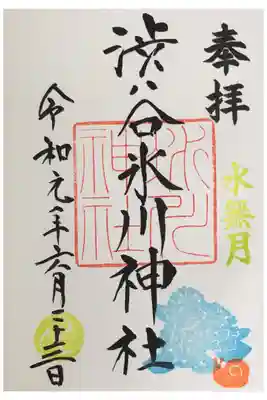 奉拝
水無月
渋谷氷川神社
氷川神社
令和元年六月二十三日